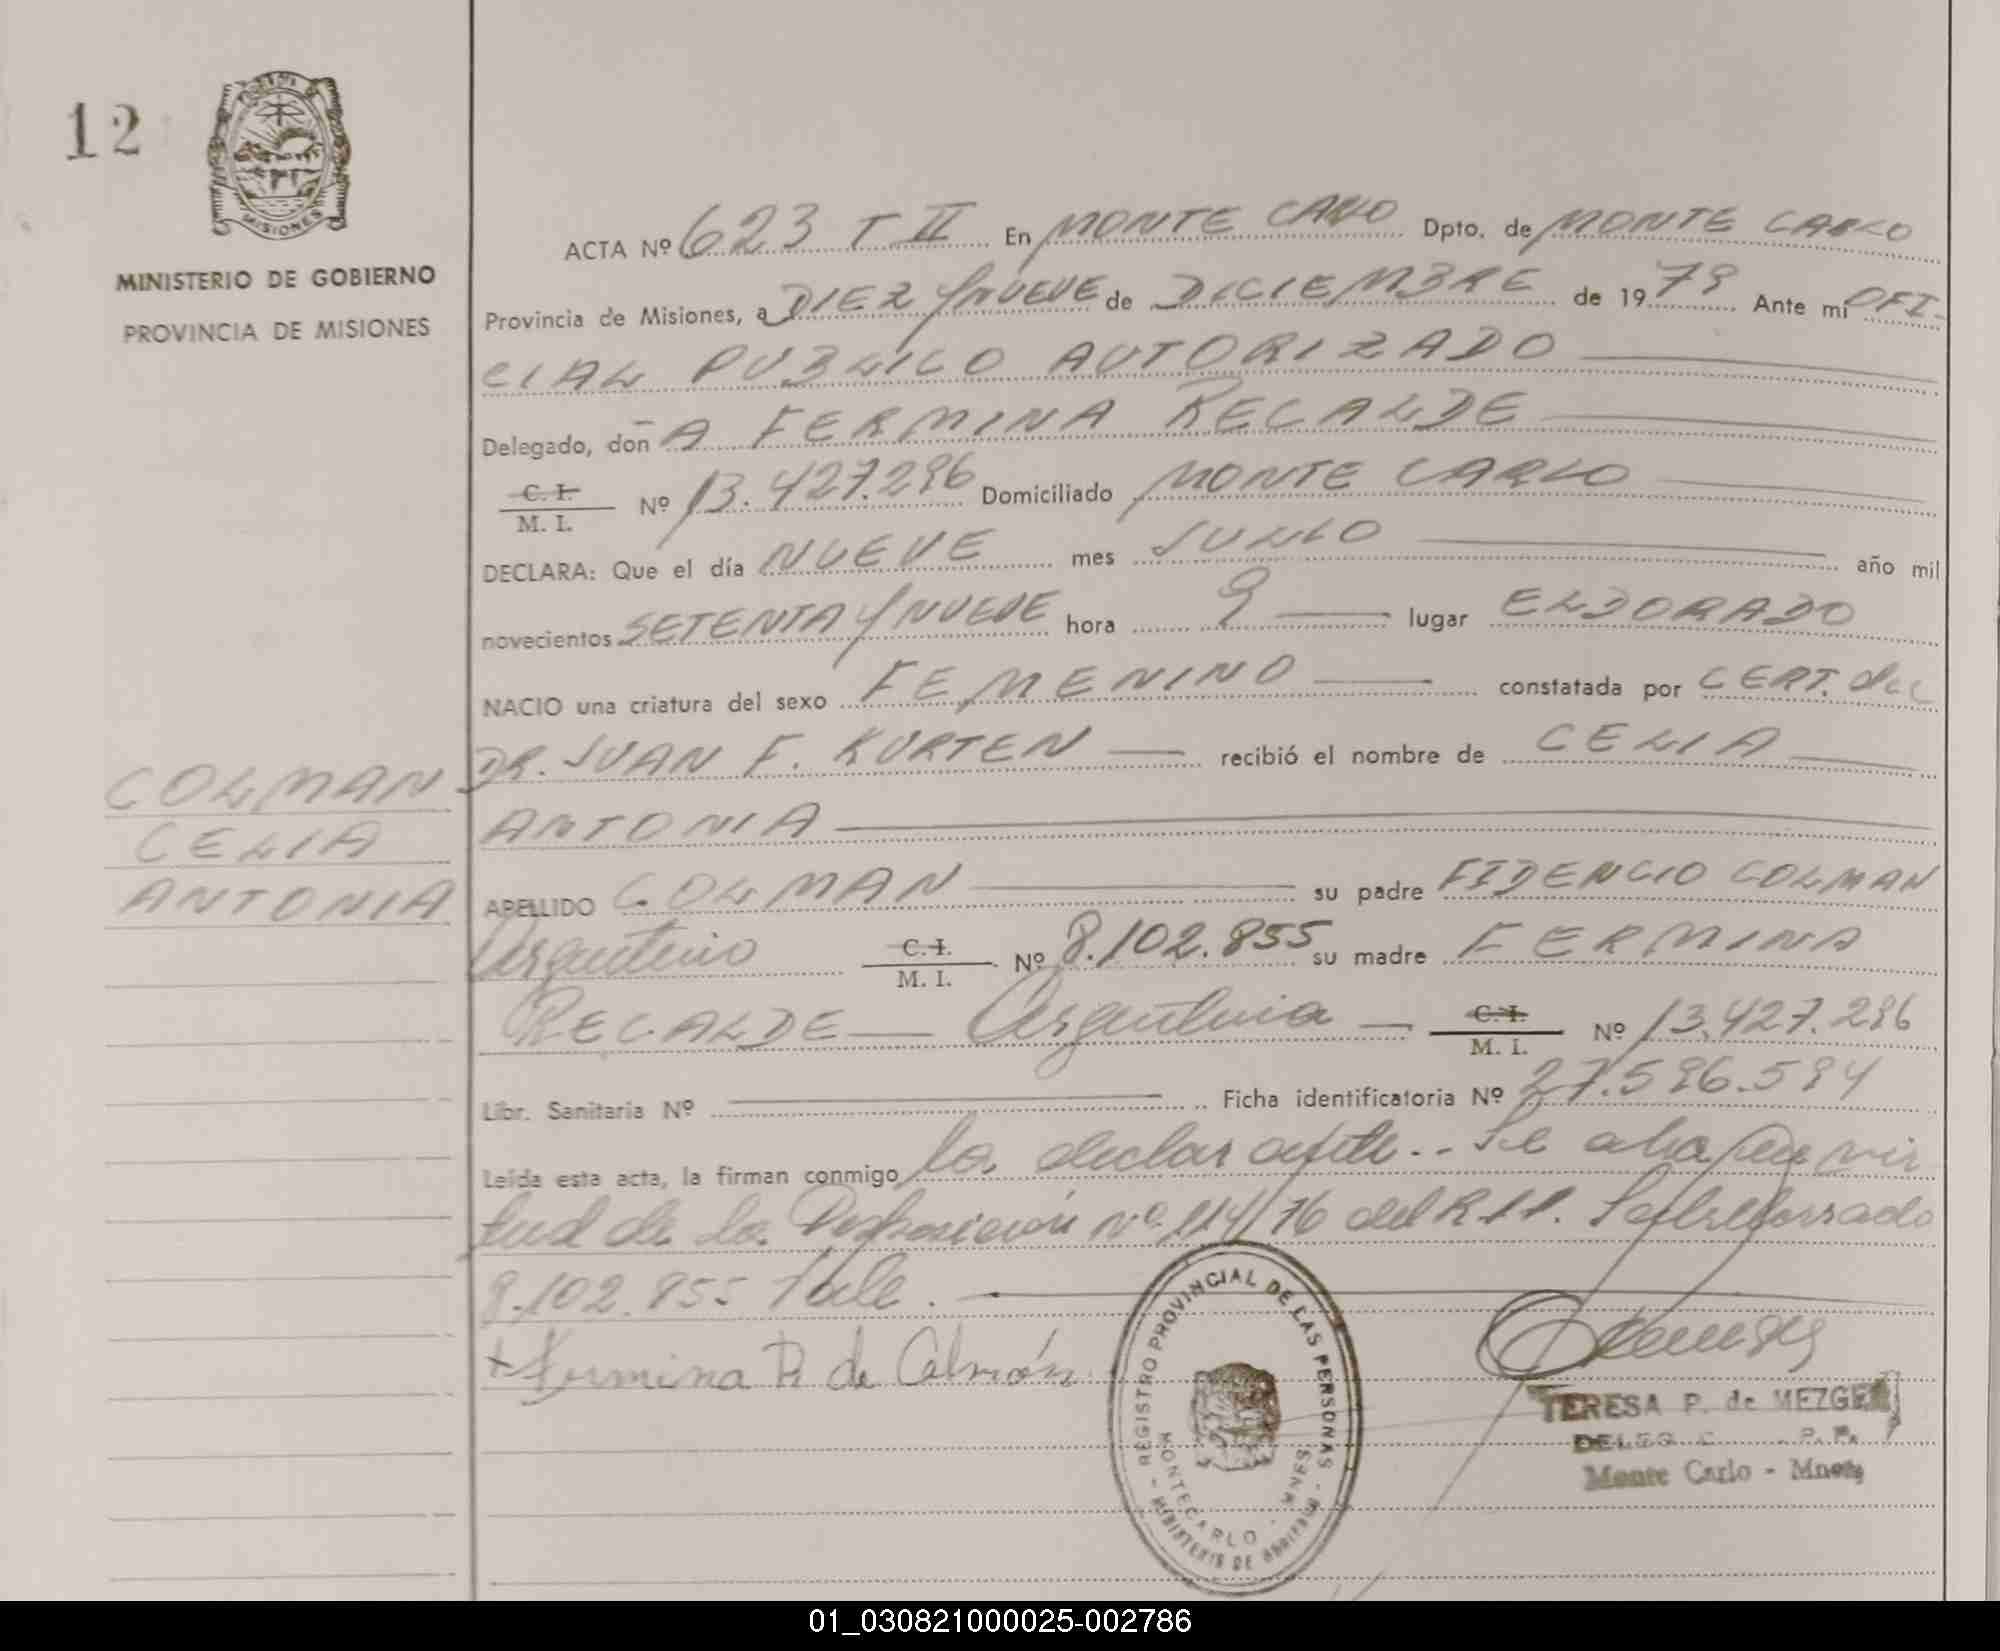 12
MISIONES
MINISTERIO DE GOBIERNO
PROVINCIA DE MISIONES
COLMAN
CELIA
ANTONIA
ACTA Nº 623 T II En MONTE CARLO Dpto. de MONTE CARLO
Provincia de Misiones, a DIEZ Y NUEVE de DICIEMBRE de 19 79 Ante mi OFI-
CIAL PUBLICO AUTORIZADO
Delegado, don A FERMINA RECALDE
C. I. M. I. Nº 13.427.286 Domiciliado MONTE CARLO
DECLARA: Que el día NUEVE mes JUNIO año mil
novecientos SETENTA Y NUEVE hora 9 lugar ELDORADO
NACIO una criatura del sexo FEMENINO constatada por CERT. del
DR. JUAN F. KURTEN recibió el nombre de CELIA
ANTONIA
APELLIDO COLMAN su padre FIDENCIO COLMAN
Argentino C. I. M. I. Nº 8.102.855 su madre FERMINA
RECALDE Argentina C. I. M. I. Nº 13.427.286
Libr. Sanitaria Nº Ficha identificatoria Nº 27.586.584
Leída esta acta, la firman conmigo la declarante.. Se en vir
tud de la Disposición nº 114/76 del R.P.P. Sobreborrado
8.102.855 Vale.
+ Fermina R de Colmán
REGISTRO PROVINCIAL DE LAS PERSONAS
MONTECARLO - MNES
MINISTERIO DE GOBIERNO
TERESA P. de MEZGER
Monte Carlo - Mnes
01_030821000025-002786